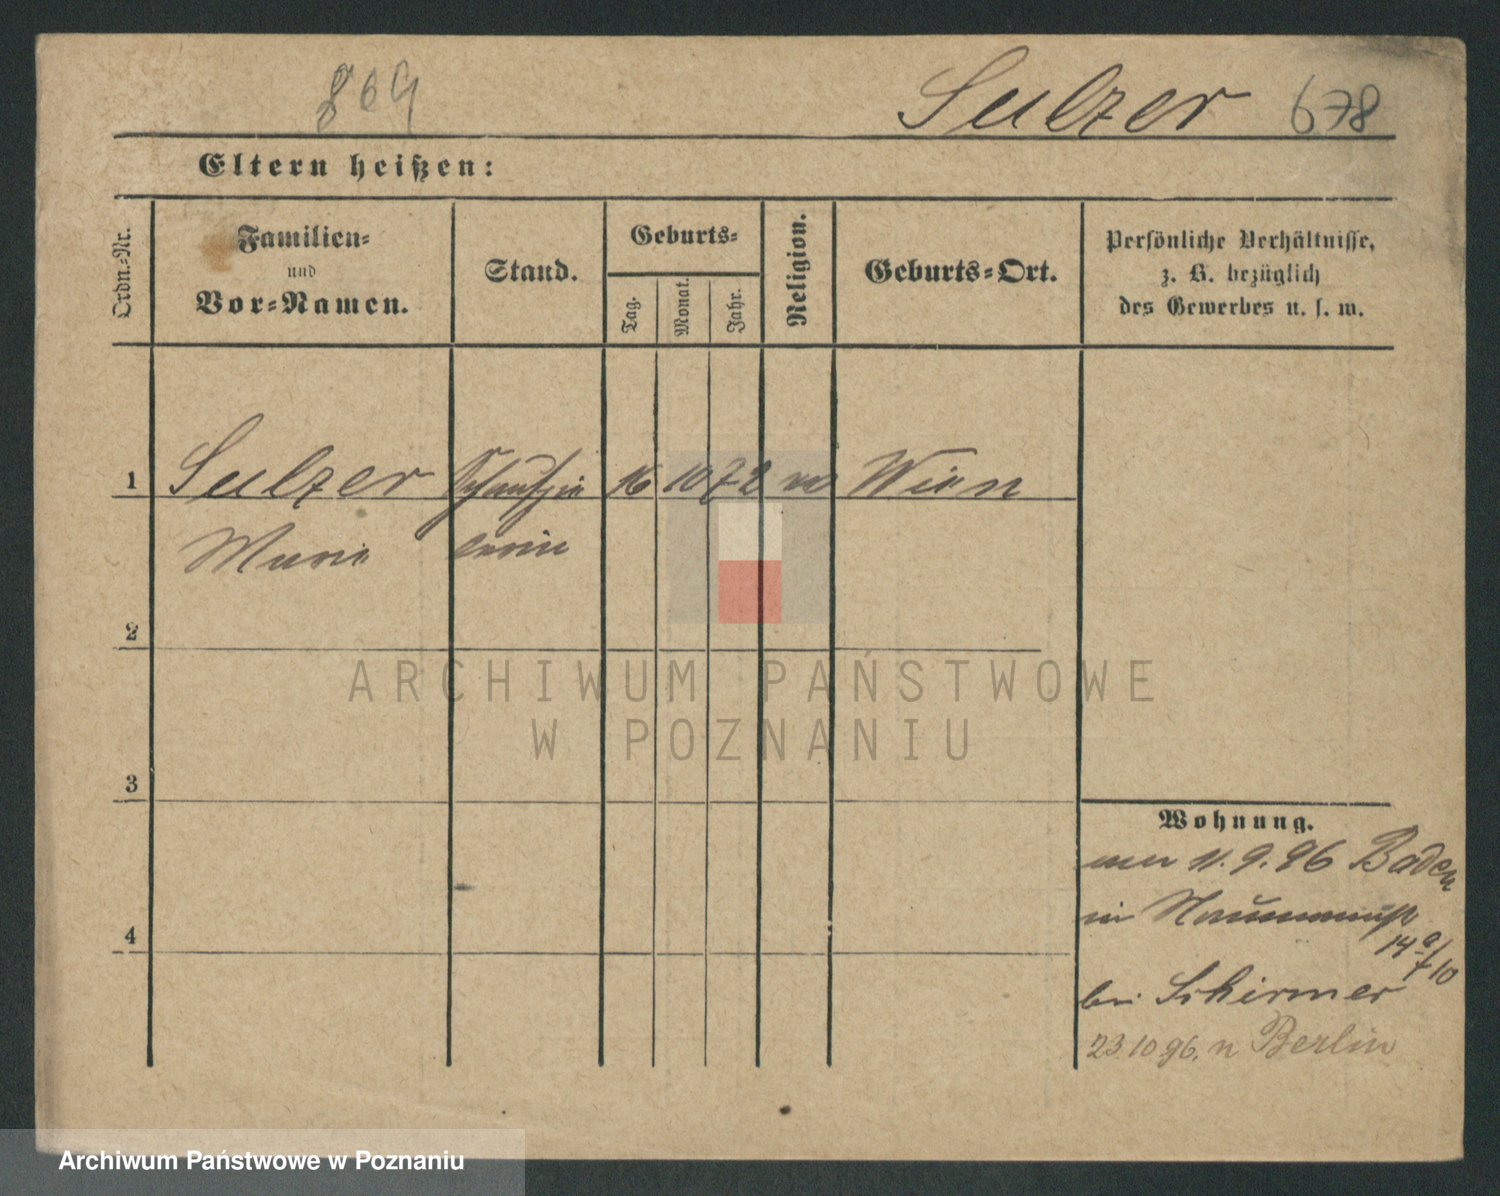 869
Sulzer 678
Eltern heißen:
Ordn.-Nr.
Familien-
und
Vor-Namen.
Stand.
Geburts-
Tag.
Monat.
Jahr.
Religion.
Geburts-Ort.
Persönliche Verhältnisse,
z. B. bezüglich
des Gewerbes u. s. w.
1 Sulzer Schauspie 16 10 72 Wien
Marie lerin
2
3
4
Wohnung.
11. 9. 96 Baden
in
14
bei Schirmer
23.10 96. n Berlin
ARCHIWUM PAŃSTWOWE
W POZNANIU
Archiwum Państwowe w Poznaniu